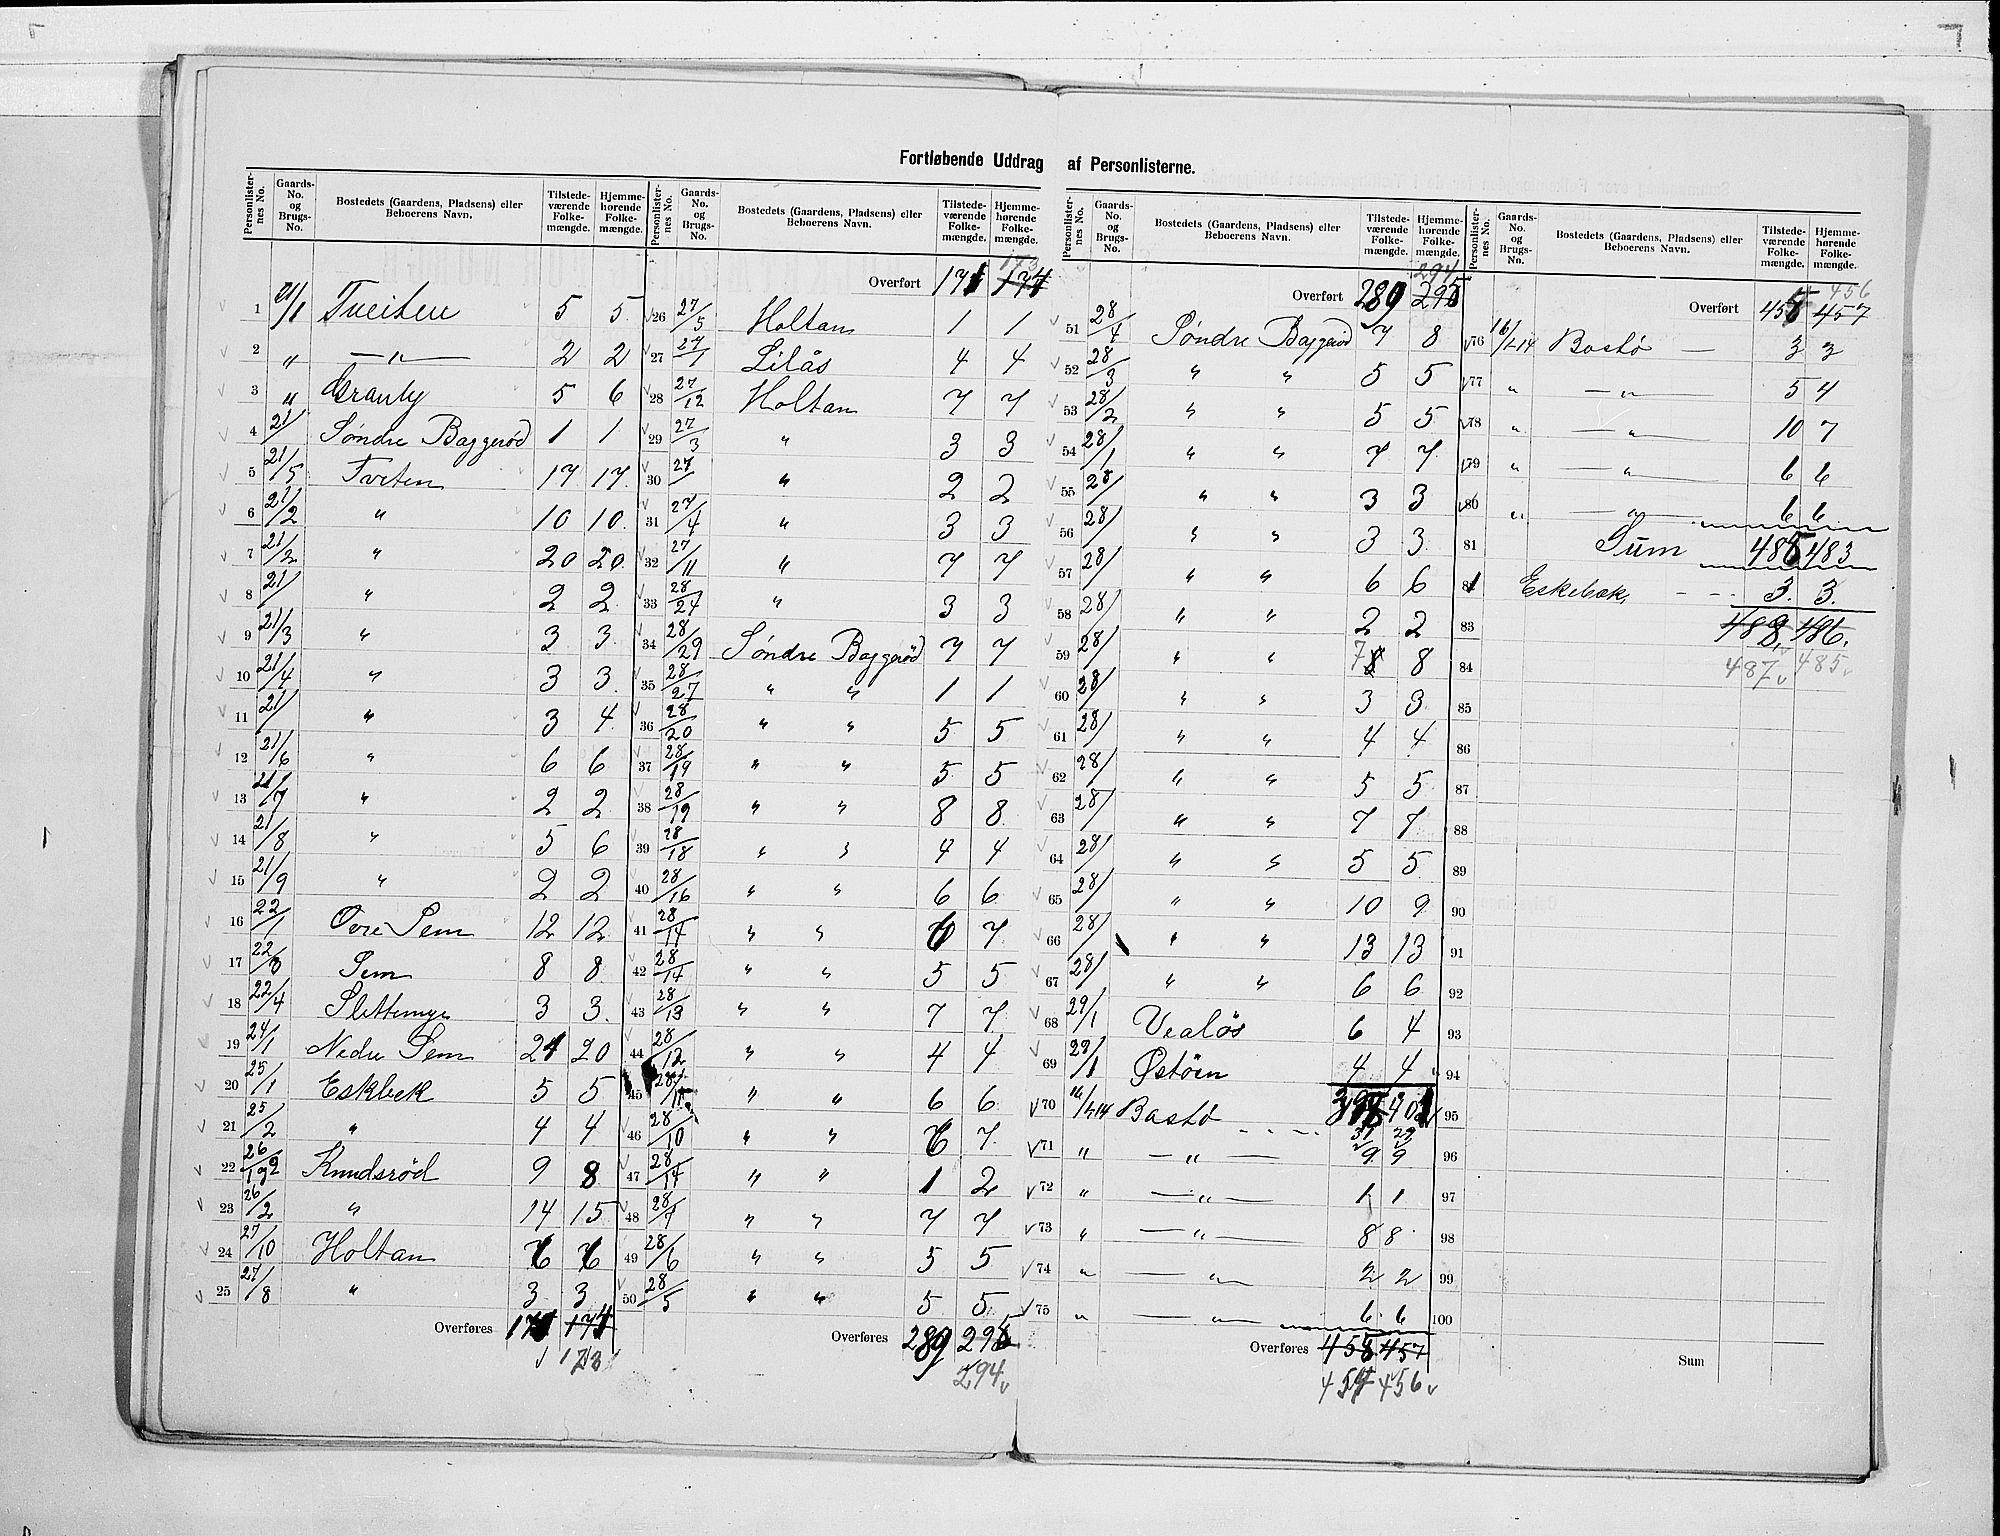 Fortløbende Uddrag af Personlisterne.
Personlisternes No. | Gaards-No. og Brugs-No. | Bostedets (Gaardens, Pladsens) eller Beboerens Navn. | Tilstedeværende Folkemængde. | Hjemmehørende Folkemængde.
1 21/1 Tveiten 5 5
2 „ —„— 2 2
3 „ Granly 5 6
4 21/ Søndre Baggerød 1 1
5 21/5 Tveten 17 17
6 21/2 „ 10 10
7 21/2 „ 20 20
8 21/ „ 2 2
9 21/3 „ 3 3
10 21/4 „ 3 3
11 21/ „ 3 4
12 21/6 „ 6 6
13 21/7 „ 2 2
14 21/8 „ 5 6
15 21/9 „ 2 2
16 22/1 Övre Sem 12 12
17 22/3 Sem 8 8
18 22/4 Slettemyr 3 3
19 24/1 Nedre Sem 21 20
20 25/1 Eskbek 5 5
21 25/2 „ 4 4
22 26/ Knudsrød 9 8
23 26/2 „ 14 15
24 27/10 Holtan 6 6
25 27/8 „ 3 3
Overføres 171 174
173
Personlisternes No. | Gaards-No. og Brugs-No. | Bostedets (Gaardens, Pladsens) eller Beboerens Navn. | Tilstedeværende Folkemængde. | Hjemmehørende Folkemængde.
173
Overført 171 174
26 27/5 Holtan 1 1
27 27/1 Lilås 4 4
28 27/12 Holtan 7 7
29 27/3 „ 3 3
30 27/ „ 2 2
31 27/4 „ 3 3
32 27/11 „ 7 7
33 28/24 „ 3 3
34 28/29 Søndre Baggerød 7 7
35 28/27 „ „ 1 1
36 28/20 „ „ 5 5
37 28/19 „ „ 5 5
38 28/19 „ „ 8 8
39 28/18 „ „ 4 4
40 28/16 „ „ 6 6
41 28/14 „ „ 6 7
42 28/14 „ „ 5 5
43 28/13 „ „ 7 7
44 28/12 „ „ 4 4
45 28/11 „ „ 6 6
46 28/10 „ „ 6 7
47 28/14 „ „ 1 2
48 28/7 „ „ 7 7
49 28/6 „ „ 5 5
50 28/5 „ „ 5 5
Overføres 289 295
294
Personlisternes No. | Gaards-No. og Brugs-No. | Bostedets (Gaardens, Pladsens) eller Beboerens Navn. | Tilstedeværende Folkemængde. | Hjemmehørende Folkemængde.
294
Overført 289 295
51 28/4 Søndre Baggerød 7 8
52 28/3 „ „ 5 5
53 28/2 „ „ 5 5
54 28/1 „ „ 7 7
55 28/ „ „ 3 3
56 28/ „ „ 3 3
57 28/ „ „ 6 6
58 28/ „ „ 2 2
59 28/ „ „ 7 8 8
60 28/ „ „ 3 3
61 28/ „ „ 4 4
62 28/ „ „ 5 5
63 28/ „ „ 7 7
64 28/ „ „ 5 5
65 28/ „ „ 10 9
66 28/ „ „ 13 13
67 28/ „ „ 6 6
68 29/1 Vealös 6 4
69 29/1 Østöen 4 4
70 16/1-14 Bastø
71 „ —„— 9 9
72 „ —„— 1 1
73 „ —„— 8 8
74 „ —„— 2 2
75 „ —„— 6 6
Overføres 458 457
457 456
Personlisternes No. | Gaards-No. og Brugs-No. | Bostedets (Gaardens, Pladsens) eller Beboerens Navn. | Tilstedeværende Folkemængde. | Hjemmehørende Folkemængde.
456
Overført 458 457
76 16/1-14 Bastø — 3 3
77 „ —„— 5 4
78 „ —„— 10 7
79 „ —„— 6 6
80 „ —„— 6 6
81 Sum 485 483
1 Eskebæk 3 3
83 488 486
84 487 485
85
86
87
88
89
90
91
92
93
94
95
96
97
98
99
100
Sum